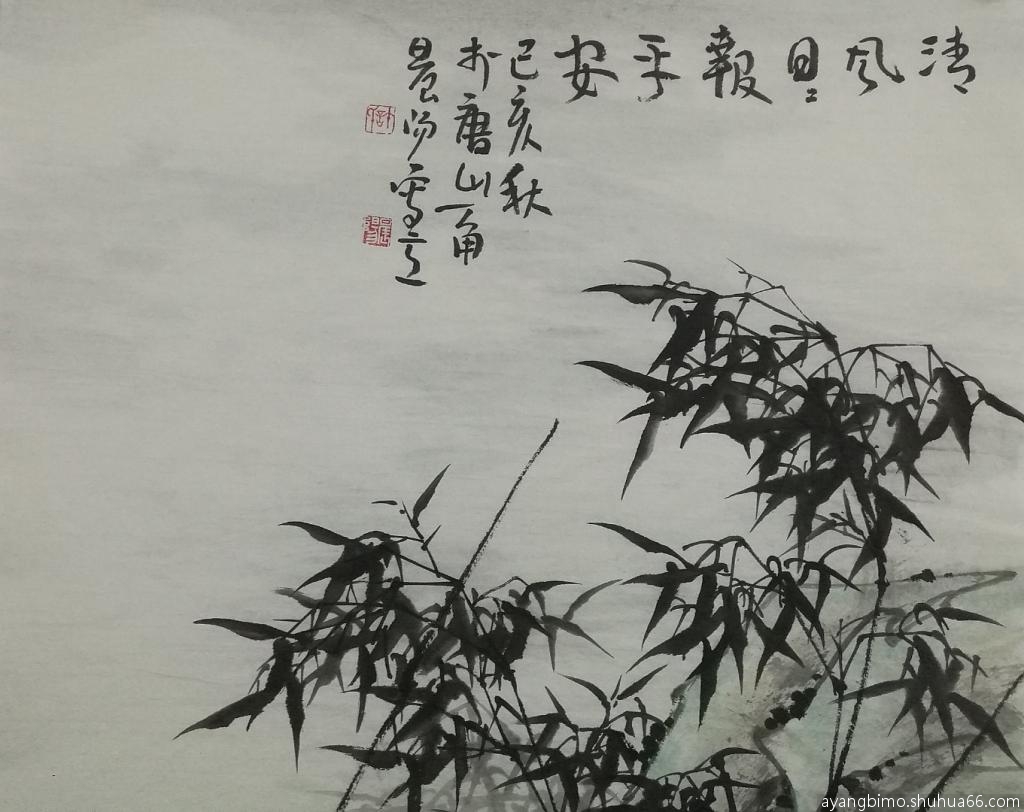 清风日〻報平安
己亥秋
於唐山一角
晨阳写之
ayangbimo.shuhua66.com